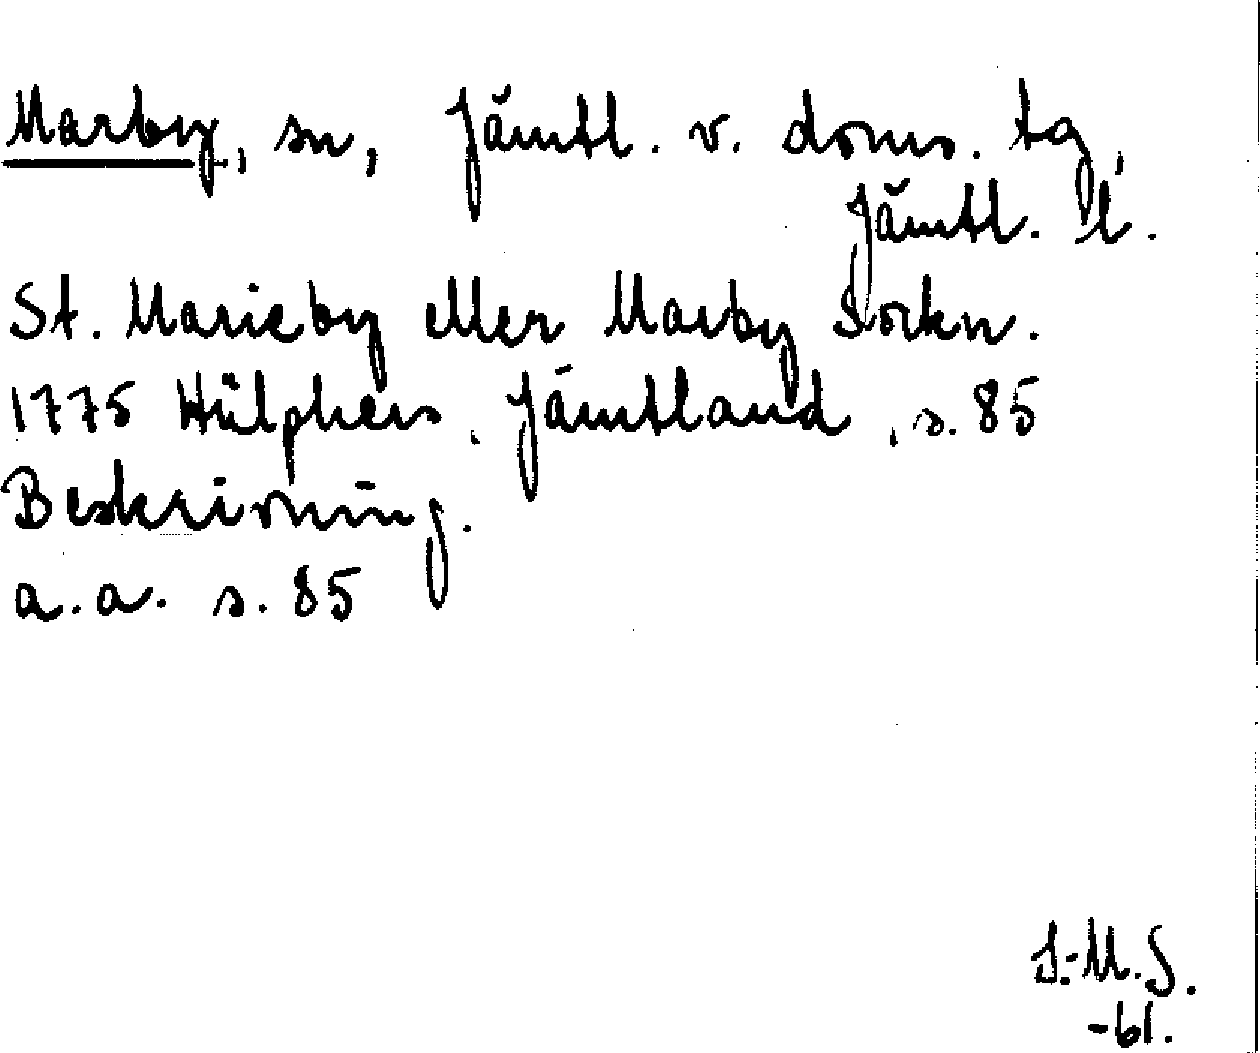 Marby, sn, Jämtl. v. doms. tg,
Jämtl. l.
St. Marieby eller Marby Sockn.
1775 Hülphers, Jämtland, s. 85
Beskrivning.
a.a. s. 85
I.-M.S.
-61.